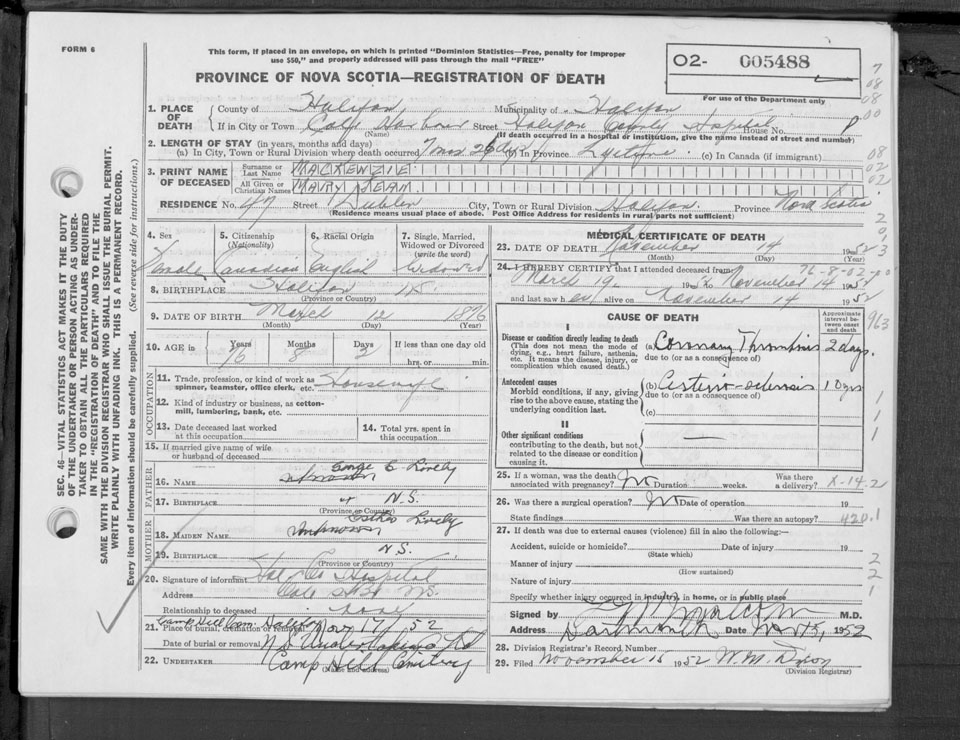 FORM 6
This form, if placed in an envelope, on which is printed "Dominion Statistics—Free, penalty for improper
use $50," and properly addressed will pass through the mail "FREE"
PROVINCE OF NOVA SCOTIA—REGISTRATION OF DEATH
O2- 005488
For use of the Department only
1. PLACE OF DEATH
County of Halifax Municipality of Halifax
If in City or Town Cole Harbour Street Halifax County Hospital House No.
(Name) (If death occurred in a hospital or institution, give the name instead of street and number)
2. LENGTH OF STAY (in years, months and days)
(a) In City, Town or Rural Division where death occurred 7 mos 26 days (b) In Province Lifetime (c) In Canada (if immigrant)
3. PRINT NAME OF DECEASED
Surname or Last Name MACKENZIE
All Given or Christian Names MARY JEAN
RESIDENCE No. 47 Street Dublin City, Town or Rural Division Halifax Province Nova Scotia
(Residence means usual place of abode. Post Office Address for residents in rural parts not sufficient)
4. Sex
Female
5. Citizenship
(Nationality)
Canadian
6. Racial Origin
English
7. Single, Married,
Widowed or Divorced
(write the word)
Widowed
8. BIRTHPLACE Halifax N.S.
(Province or Country)
9. DATE OF BIRTH March 12 1876
(Month) (Day) (Year)
10. AGE in Years Months Days If less than one day
76 8 2 hrs. or min.
OCCUPATION
11. Trade, profession, or kind of work as
spinner, teamster, office clerk, etc. Housewife
12. Kind of industry or business, as cotton-
mill, lumbering, bank, etc.
13. Date deceased last worked
at this occupation
14. Total yrs. spent in
this occupation
15. If married give name of wife
or husband of deceased
FATHER
George E Lively
16. NAME unknown
17. BIRTHPLACE " N.S.
(Province or Country)
MOTHER
Esther Lively
18. MAIDEN NAME unknown
N.S.
19. BIRTHPLACE
(Province or Country)
20. Signature of informant Hal Co Hospital
Address Cole Hbr N.S.
Relationship to deceased none
Camp Hill Cem. Halifax
21. Place of burial, cremation or removal Nov 17, 52
Date of burial or removal N S Undertaking Co
22. UNDERTAKER Camp Hill Cemetery
(Name and address)
MEDICAL CERTIFICATE OF DEATH
23. DATE OF DEATH November 14 1952
(Month) (Day)
76-8-02-00
24. I HEREBY CERTIFY that I attended deceased from
March 19 1952 to November 14 1952
and last saw her alive on November 14 1952
CAUSE OF DEATH
Approximate
interval be-
tween onset
and death
I
Disease or condition directly leading to death
(This does not mean the mode of
dying, e.g., heart failure, asthenia,
etc. It means the disease, injury, or
complication which caused death.)
(a) Coronary Thrombosis 2 days.
due to (or as a consequence of)
Antecedent causes
Morbid conditions, if any, giving
rise to the above cause, stating the
underlying condition last.
(b) Arterio-sclerosis 10 yrs
due to (or as a consequence of)
(c)
II
Other significant conditions
contributing to the death, but not
related to the disease or condition
causing it.
25. If a woman, was the death
associated with pregnancy? No Duration weeks. Was there
a delivery? X-14.2
26. Was there a surgical operation? No Date of operation 19
State findings Was there an autopsy? 420.1
27. If death was due to external causes (violence) fill in also the following:—
Accident, suicide or homicide? Date of injury 19
(State which)
Manner of injury
(How sustained)
Nature of injury
Specify whether injury occurred in industry, in home, or in public place
Signed by Malcolm M.D.
Address Dartmouth Date Nov 15, 1952
28. Division Registrar's Record Number
29. Filed November 15 1952 W. M.
(Division Registrar)
SEC. 46—VITAL STATISTICS ACT MAKES IT THE DUTY
OF THE UNDERTAKER OR PERSON ACTING AS UNDER-
TAKER TO OBTAIN ALL THE PARTICULARS REQUIRED
IN THE "REGISTRATION OF DEATH" AND TO FILE THE
SAME WITH THE DIVISION REGISTRAR WHO SHALL ISSUE THE BURIAL PERMIT.
WRITE PLAINLY WITH UNFADING INK. THIS IS A PERMANENT RECORD.
Every item of information should be carefully supplied. (See reverse side for instructions.)
7
08
08
00
08
02
02
2
0
3
963
1
1
1
2
2
1